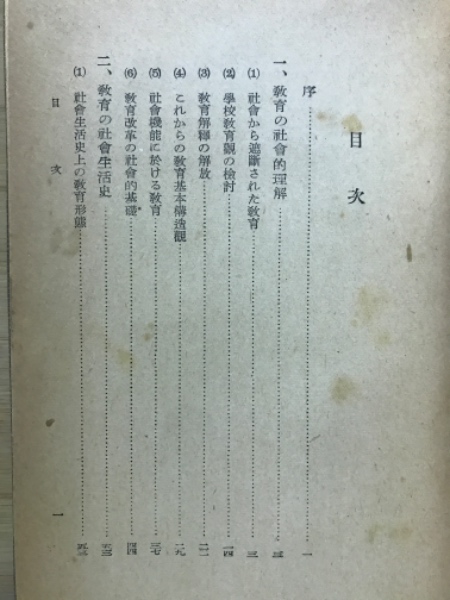 目次
序……一
一、教育の社會的理解……三
(1) 社會から遮斷された教育……三
(2) 學校教育觀の檢討……一四
(3) 教育解釋の解放……二一
(4) これからの教育基本構造觀……二九
(5) 社會機能に於ける教育……三七
(6) 教育改革の社會的基礎……四四
二、教育の社會生活史……五三
(1) 社會生活史上の教育形態……五三
目次 一